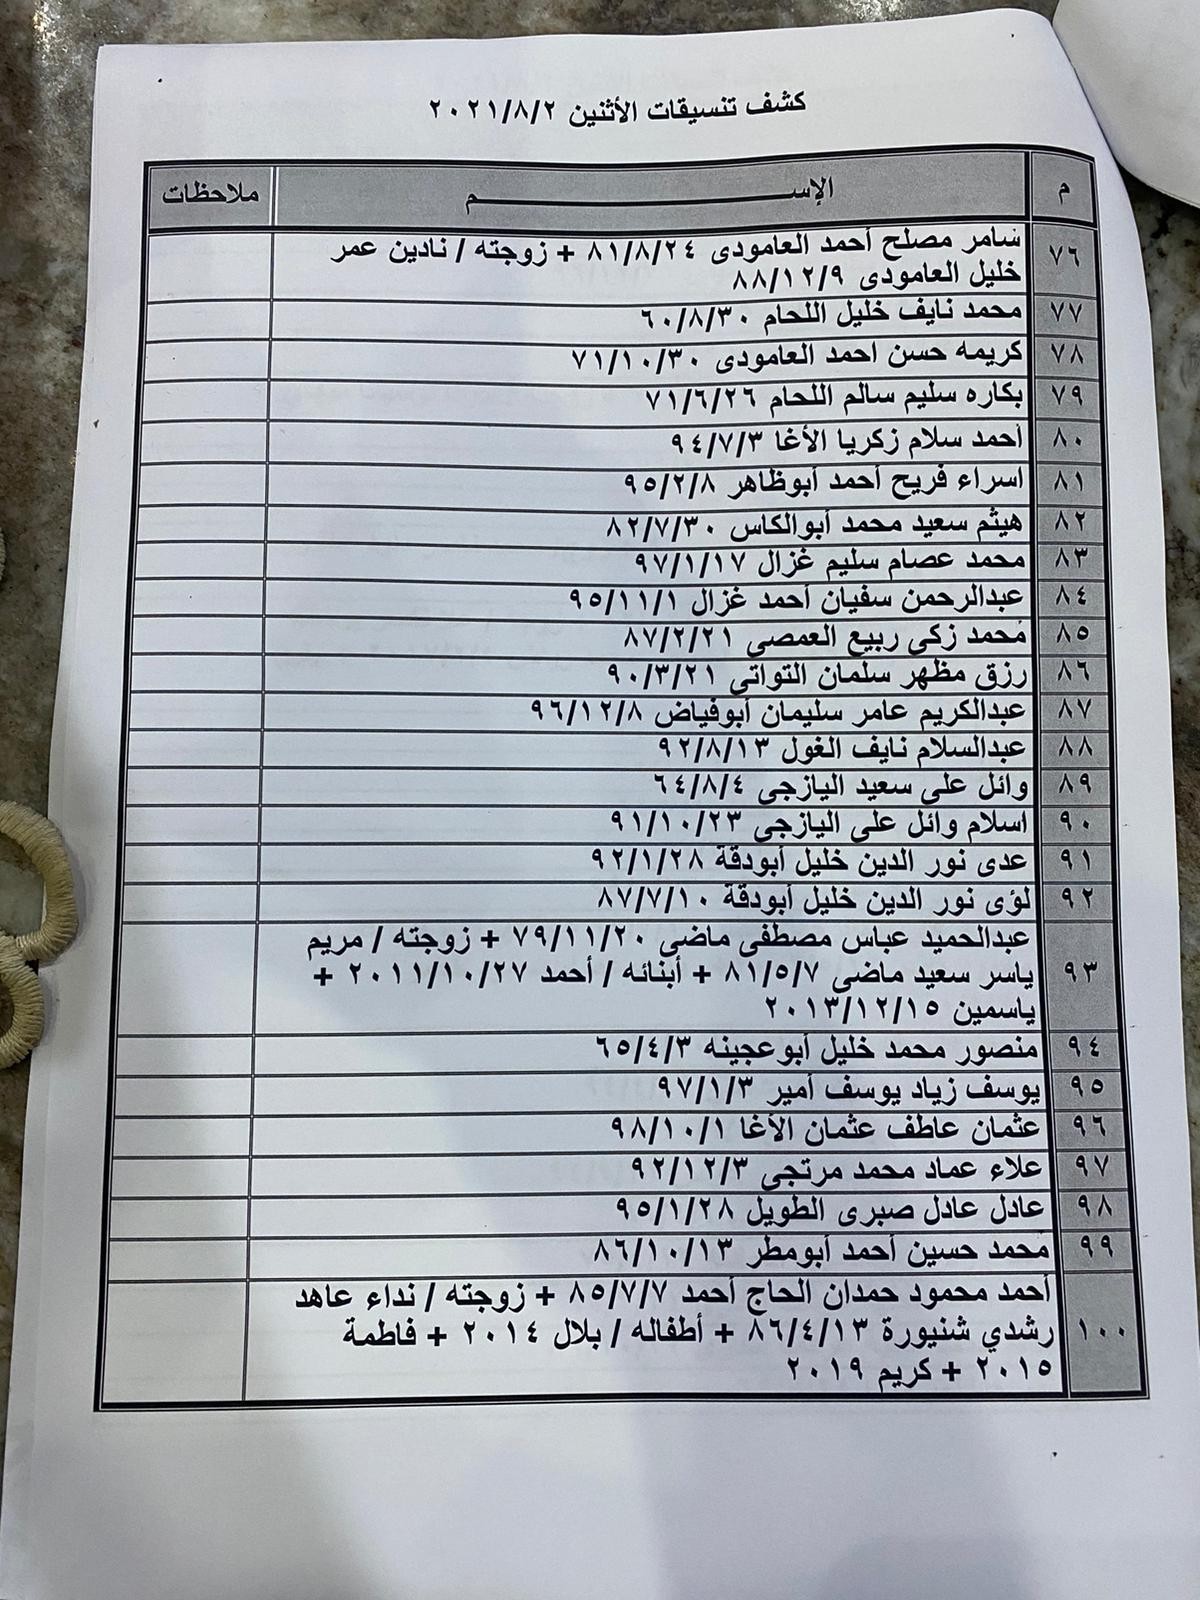 كشف تنسيقات الأثنين ٢٠٢١/٨/٢
م الإســــــــــم ملاحظات
٧٦ سامر مصلح أحمد العامودى ٨١/٨/٢٤ + زوجته / نادين عمر
خليل العامودى ٨٨/١٢/٩
٧٧ محمد نايف خليل اللحام ٦٠/٨/٣٠
٧٨ كريمه حسن احمد العامودى ٧١/١٠/٣٠
٧٩ بكاره سليم سالم اللحام ٧١/٦/٢٦
٨٠ أحمد سلام زكريا الأغا ٩٤/٧/٣
٨١ اسراء فريح أحمد أبوظاهر ٩٥/٢/٨
٨٢ هيثم سعيد محمد أبوالكاس ٨٢/٧/٣٠
٨٣ محمد عصام سليم غزال ٩٧/١/١٧
٨٤ عبدالرحمن سفيان أحمد غزال ٩٥/١١/١
٨٥ محمد زكى ربيع العمصي ٨٧/٢/٢١
٨٦ رزق مظهر سلمان التواتى ٩٠/٣/٢١
٨٧ عبدالكريم عامر سليمان أبوفياض ٩٦/١٢/٨
٨٨ عبدالسلام نايف الغول ٩٢/٨/١٣
٨٩ وائل على سعيد اليازجى ٦٤/٨/٤
٩٠ اسلام وائل على اليازجى ٩١/١٠/٢٣
٩١ عدى نور الدين خليل أبودقة ٩٢/١/٢٨
٩٢ لؤى نور الدين خليل أبودقة ٨٧/٧/١٠
٩٣ عبدالحميد عباس مصطفى ماضى ٧٩/١١/٢٠ + زوجته / مريم
ياسر سعيد ماضى ٨١/٥/٧ + أبنائه / أحمد ٢٠١١/١٠/٢٧ +
ياسمين ٢٠١٣/١٢/١٥
٩٤ منصور محمد خليل أبوعجينه ٦٥/٤/٣
٩٥ يوسف زياد يوسف أمير ٩٧/١/٣
٩٦ عثمان عاطف عثمان الأغا ٩٨/١٠/١
٩٧ علاء عماد محمد مرتجى ٩٢/١٢/٣
٩٨ عادل عادل صبرى الطويل ٩٥/١/٢٨
٩٩ محمد حسين أحمد أبومطر ٨٦/١٠/١٣
١٠٠ أحمد محمود حمدان الحاج أحمد ٨٥/٧/٧ + زوجته / نداء عاهد
رشدي شنيورة ٨٦/٤/١٣ + أطفاله / بلال ٢٠١٤ + فاطمة
٢٠١٥ + كريم ٢٠١٩